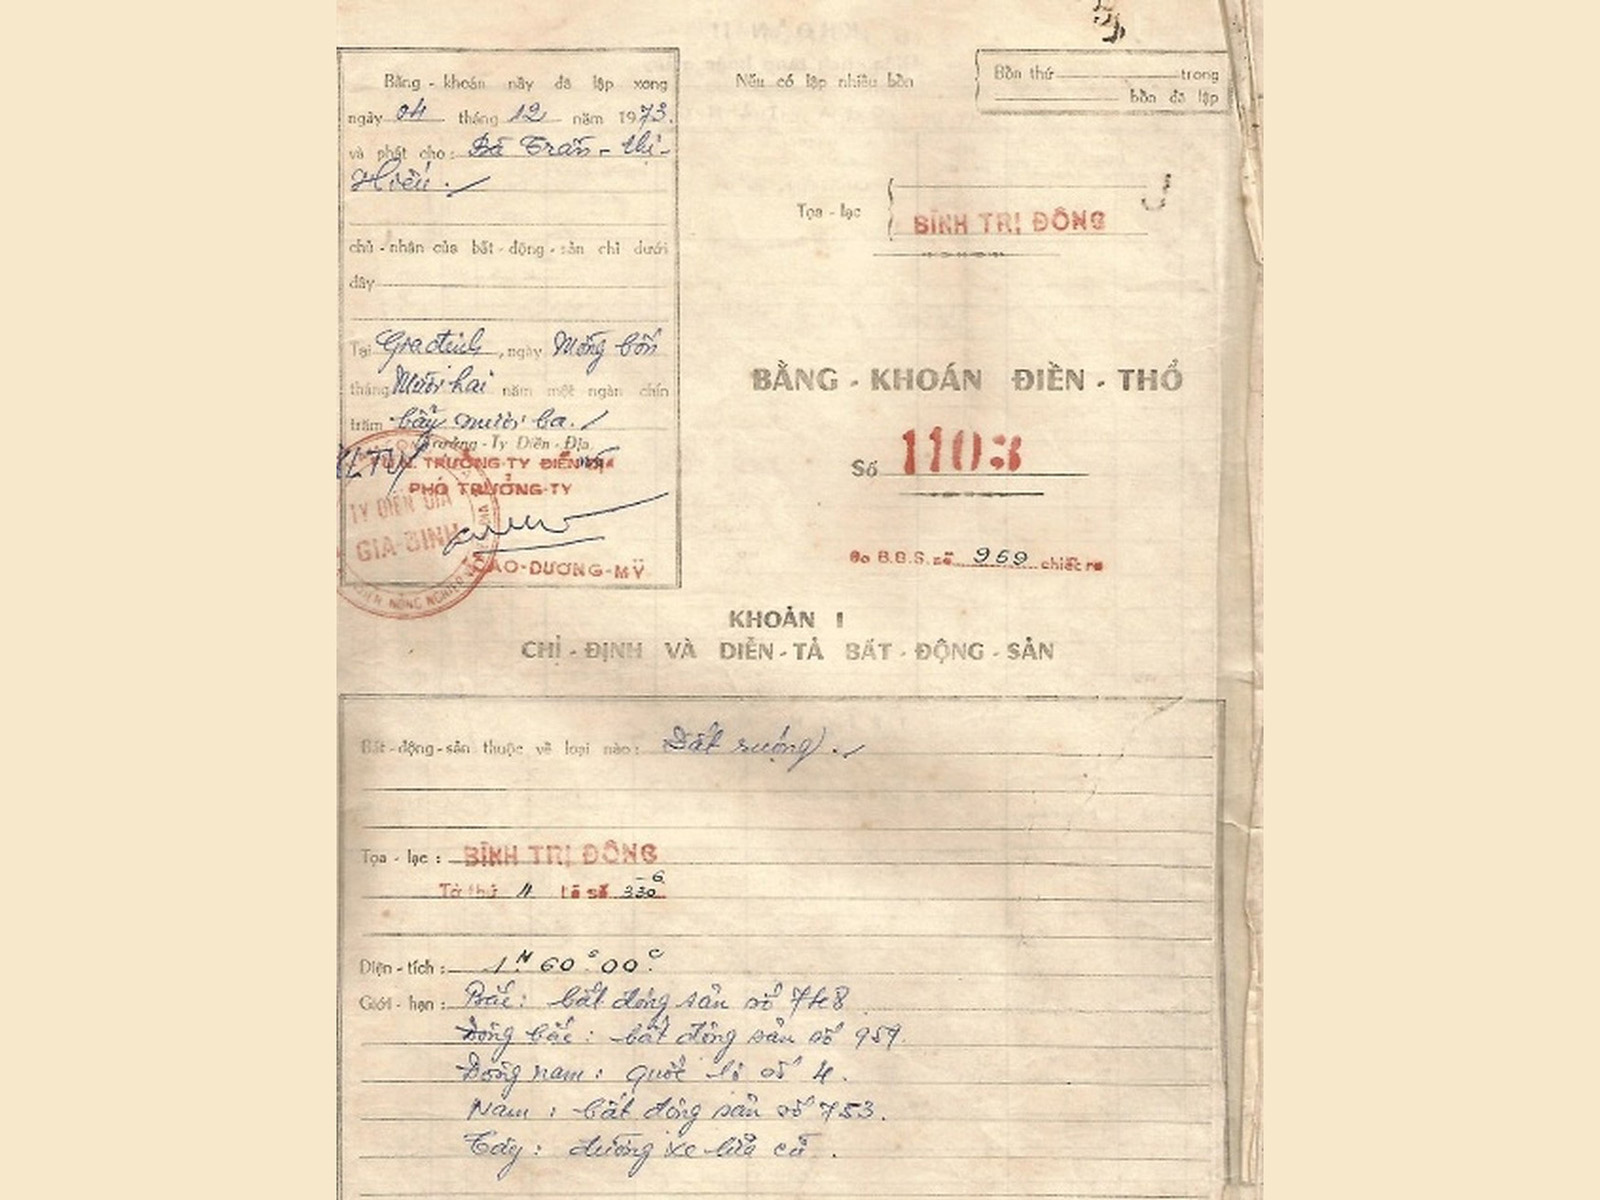 Bằng - khoán nầy đã lập xong
ngày 04 tháng 12 năm 1973.
và phát cho: Bà Trần - thị -
Hiếu.
chủ - nhân của bất - động - sản chỉ dưới
đây
Tại Gia định, ngày Mồng bốn
tháng Mười hai năm một ngàn chín
trăm bẩy mươi ba.
Trưởng - Ty Điền - Địa
TRƯỞNG-TY ĐIỀN ĐỊA
PHÓ TRƯỞNG-TY
TY ĐIỀN ĐỊA
GIA-ĐỊNH
NÔNG NGHIỆP
CAO-DƯƠNG-MỸ
Nếu có lập nhiều bổn
Bổn thứ trong
bổn đã lập
Tọa - lạc
BÌNH TRỊ ĐÔNG
BẰNG - KHOÁN ĐIỀN - THỔ
Số 1103
Do B.Đ.S. số 959 chiết ra
KHOẢN I
CHỈ - ĐỊNH VÀ DIỄN - TẢ BẤT - ĐỘNG - SẢN
Bất - động - sản thuộc về loại nào: Đất ruộng.
Tọa - lạc : BÌNH TRỊ ĐÔNG
Tờ thứ 4 Lô số 330
Diện - tích : 1M 60S 00C.
Giới - hạn : Bắc: bất động sản số 748
Đông bắc : bất động sản số 959.
Đông nam : quốc lộ số 4.
Nam : bất động sản số 753.
Tây : đường xe lửa cũ.